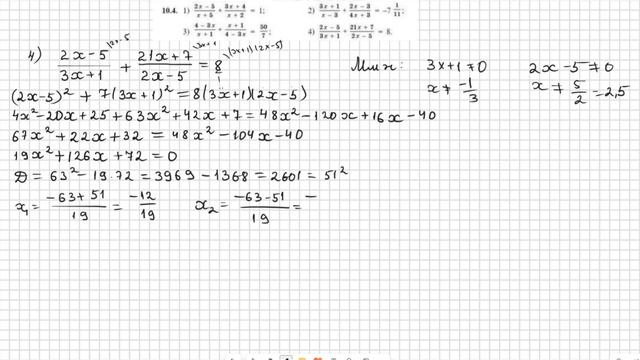 10.4. 1) (2x-5)/(x+5) + (3x+4)/(x+2) = 1; 2) (3x+1)/(x-3) + (2x-3)/(4x+3) = -7 1/11;
3) (4-3x)/(x+1) + (x+1)/(4-3x) = 50/7; 4) (2x-5)/(3x+1) + (21x+7)/(2x-5) = 8.
4) (2x-5)/(3x+1) + (21x+7)/(2x-5) = 8 \(3x+1)(2x-5) 3x+1≠0 2x-5≠0
x≠-1/3 x≠5/2=2,5
(2x-5)²+7(3x+1)²=8(3x+1)(2x-5)
4x²-20x+25+63x²+42x+7=48x²-120x+16x-40
67x²+22x+32=48x²-104x-40
19x²+126x+72=0
D=63²-19·72=3969-1368=2601=51²
x₁=(-63+51)/19=-12/19 x₂=(-63-51)/19=-